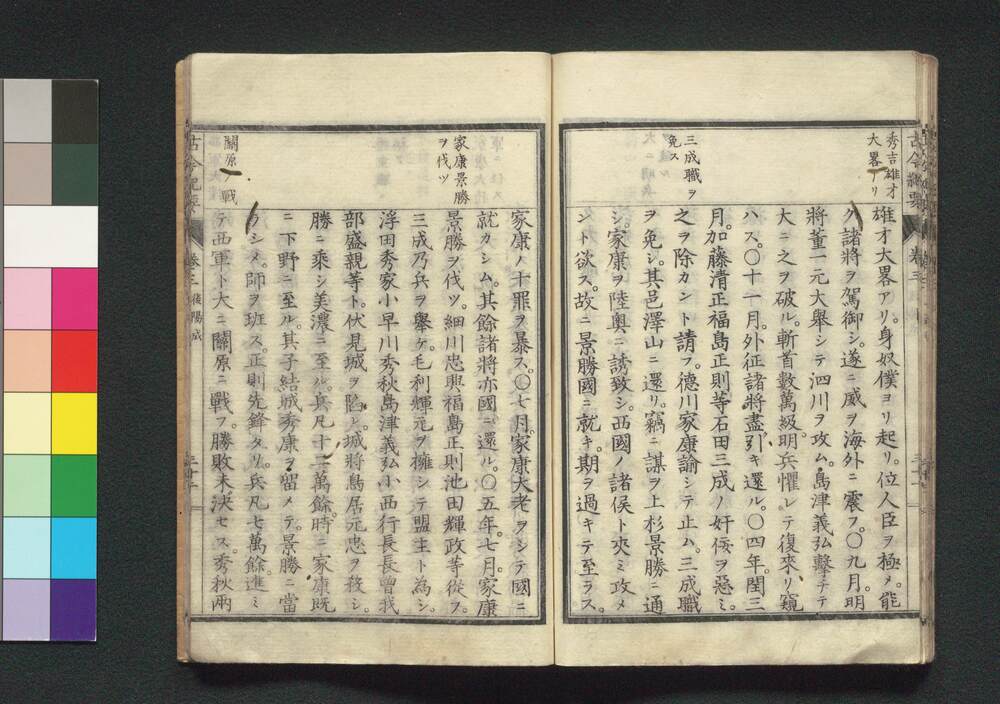 秀吉雄才
大畧アリ
雄才大畧アリ。身奴僕ヨリ起リ。位人臣ヲ極メ。能
ク諸將ヲ駕御シ。遂ニ威ヲ海外ニ震フ。〇九月。明
將董一元大擧シテ泗川ヲ攻ム。島津義弘擊チテ
大ニ之ヲ破ル。斬首數萬級。明兵懼レテ復來リ窺
ハス。〇十一月。外征諸將盡引キ還ル。〇四年。閏三
三成職ヲ
免ス
月。加藤清正福島正則等石田三成ノ奸佞ヲ惡ミ。
之ヲ除カント請フ。德川家康諭シテ止ム。三成職
ヲ免シ。其邑澤山ニ還リ。竊ニ謀ヲ上杉景勝ニ通
シ。家康ヲ陸奥ニ誘致シ。西國ノ諸侯ト夾ミ攻メ
ント欲ス。故ニ景勝國ニ就キ。期ヲ過キテ至ラス。
家康ノ十罪ヲ暴ス。〇七月。家康大老ヲシテ國ニ
就カシム。其餘諸將亦國ニ還ル。〇五年。七月。家康
家康景勝
ヲ伐ツ
景勝ヲ伐ツ。細川忠興福島正則池田輝政等從フ。
三成乃兵ヲ擧ケ。毛利輝元ヲ擁シテ盟主ト為シ。
浮田秀家小早川秀秋島津義弘小西行長長曾我
部盛親等ト。伏見城ヲ陷レ。城將鳥居元忠ヲ殺シ。
勝ニ乘シ美濃ニ至ル。兵凡十二萬餘。時ニ家康既
ニ下野ニ至ル。其子結城秀康ヲ留メテ。景勝ニ當
關原ノ戰
ラシメ。師ヲ班ス。正則先鋒タリ。兵凡七萬餘。進ミ
テ西軍ト大ニ關原ニ戰フ。勝敗未決セス。秀秋兩
卷之三
後陽成